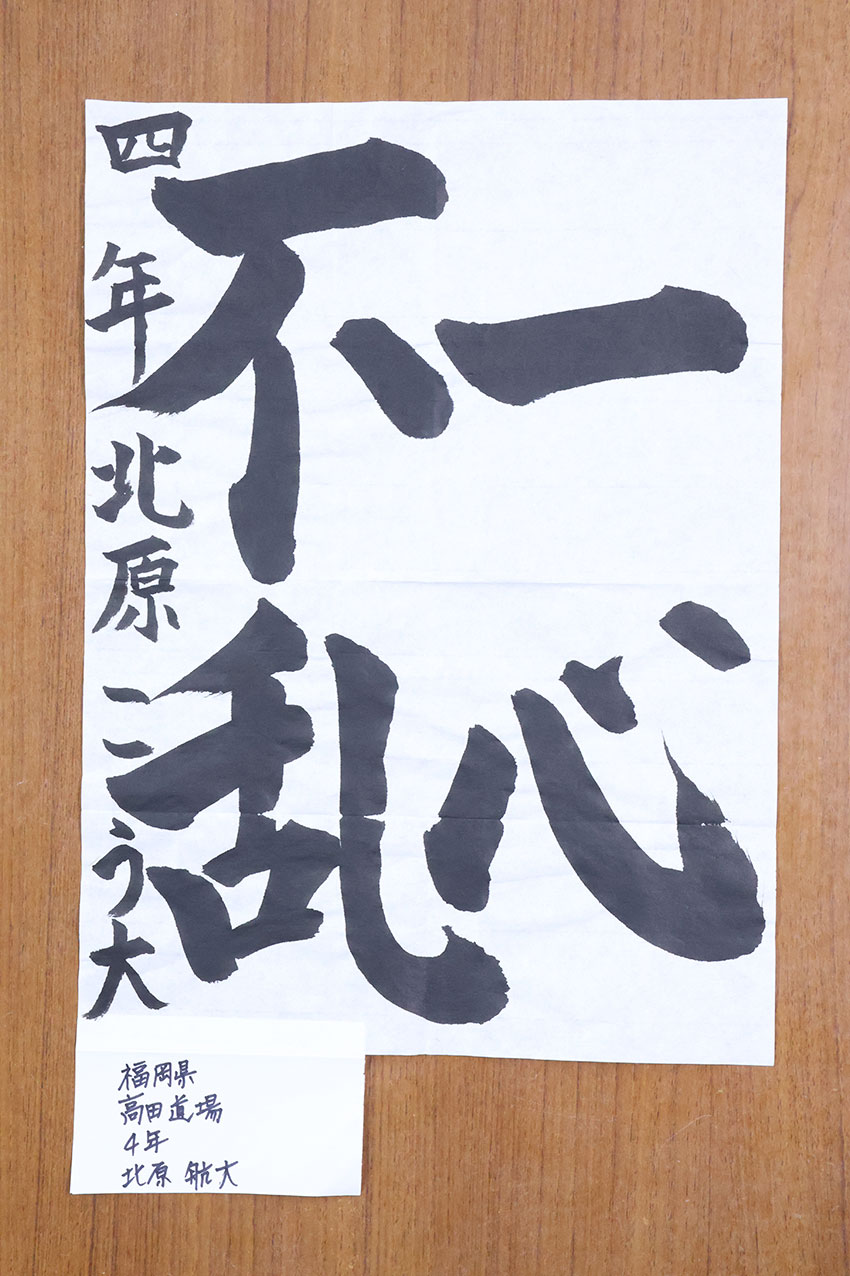 一心
不乱
四年北原こう大
福岡県
高田道場
4年
北原 航大